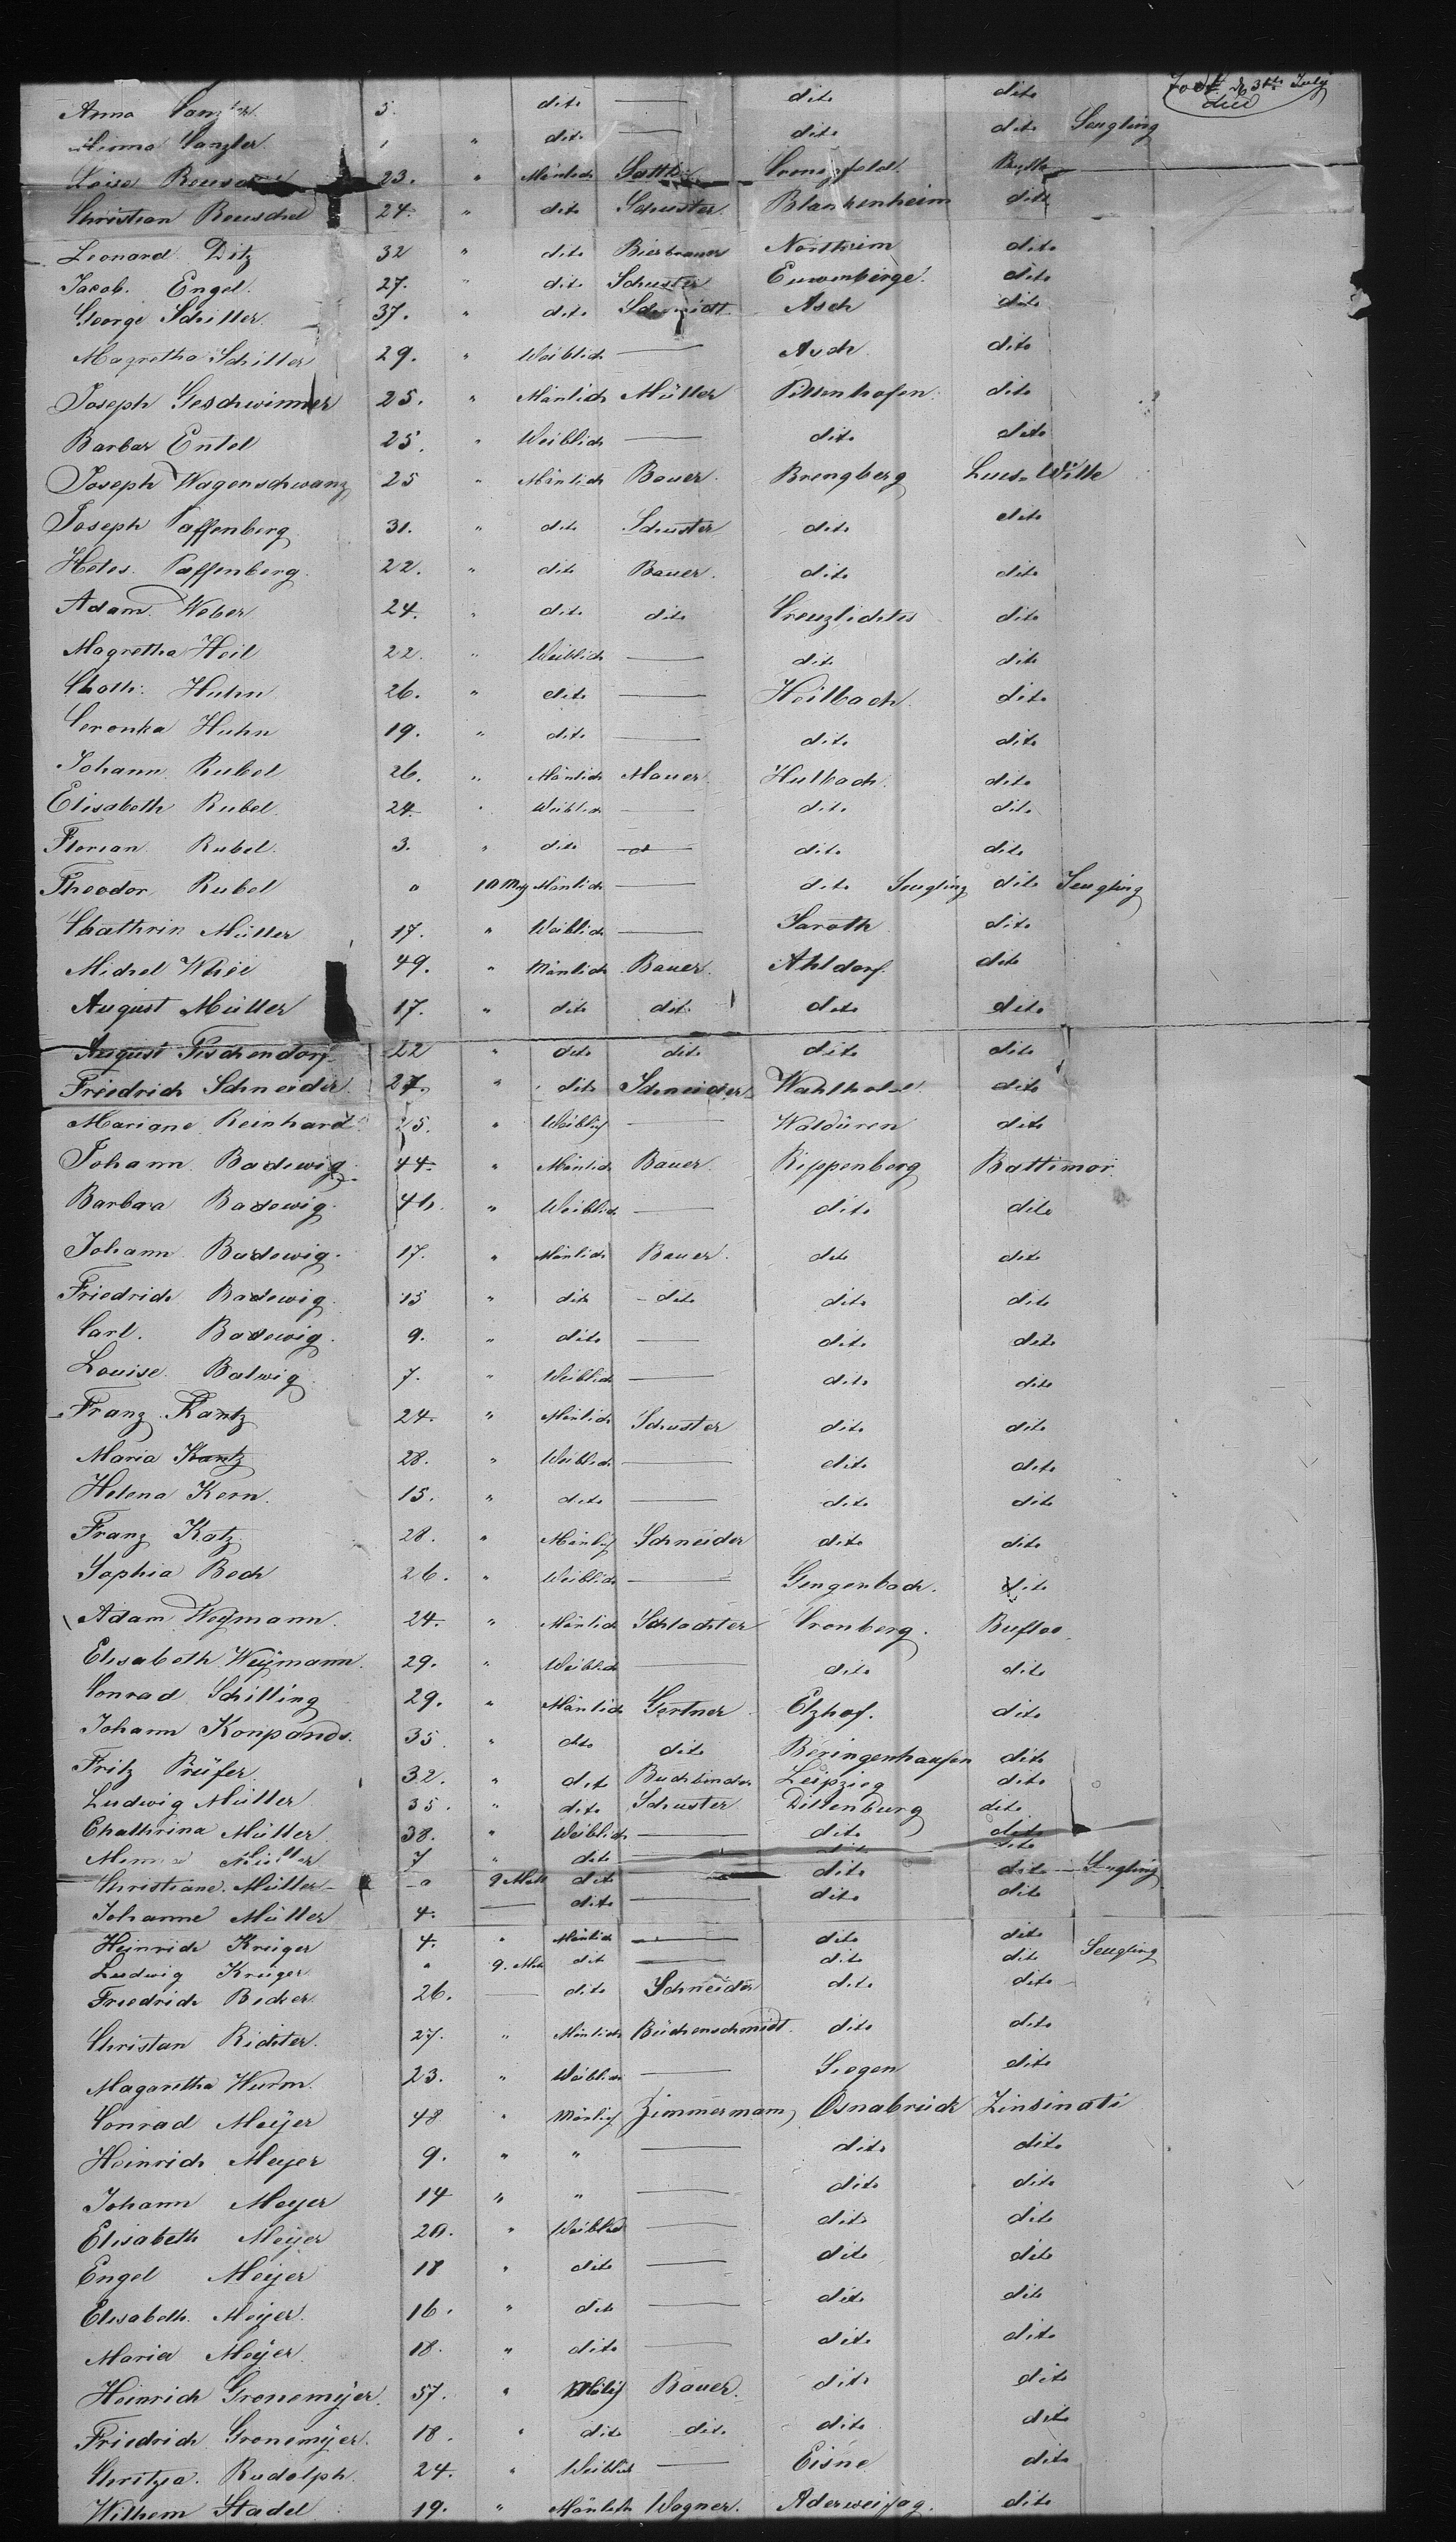 Todt d 3th July
died
Anna Canzler 5. dito — dito dito
Minna Canzler 1 " dito — dito dito Seugling
23. " Mänlich
Christian Reuschel 24. " dito Schuster Blankenheim dito
Leonard Ditz 32 " dito Bierbrauer Northeim dito
Jacob. Engel. 27. " dito Schuster dito
George Schiller 37. " dito Schmidt Asch dito
Magretha Schiller 29. " Weiblich — Asch dito
Joseph Geschwinner 25. " Mänlich Müller Pillenhofen. dito
Barbar Entel 25. " Weiblich — dito dito
Joseph Wagenschwanz 25 " Mänlich Bauer. Brengberg Luis-Wille
Joseph Paffenberg 31. " dito Schuster dito dito
Paffenberg. 22. " dito Bauer. dito dito
Adam Weber 24. " dito dito dito
Magretha Heil 22. " Weiblich — dito dito
Chath: Huhn 26. " dito — Heilbach. dito
Veronka Huhn 19. " dito — dito dito
Johann Rubel 26. " Mänlich Mauer. Hulbach. dito
Elisabeth Rubel. 24. " Weiblich — dito dito
Florian Rubel. 3. " dito — dito dito
Theodor Rubel " 10 My Mänlich — dito Seugling dito Seugling
Chathrin Müller 17. " Weiblich — Saroth dito
Michel 49. " Mänlich Bauer. Ahldorf. dito
August Müller 17. " dito dito dito dito
August Fischendorf 22 " dito dito dito dito
Friedrich Schneider 27. " dito Schneider dito
Mariane Reinhard 25. " Weiblich — Waldüren dito
Johann Badewig. 44. " Mänlich Bauer. Rippenberg Baltimor.
Barbara Badewig. " Weiblich — dito dito
Johann Badewig. 17. " Mänlich Bauer. dito dito
Friedrich Badewig. 15 " dito dito dito dito
Carl. Badewig. 9. " dito — dito dito
Louise Balwig. 7. " Weiblich — dito dito
Franz Kantz 24. " Mänlich Schuster dito dito
Maria Kantz 28. " Weiblich — dito dito
Helena Kern. 15. " dito — dito dito
Franz Katz 28. " Mänlich Schneider dito dito
Sophia Boch 26. " Weiblich — Gengenbach. dito
Adam Weÿmann. 24. " Mänlich Schlachter Cronberg. Bufloo.
Elisabeth Weÿmann. 29. " Weiblich — dito dito
Conrad Schilling 29. " Mänlich Gertner Elzhof. dito
Johann Konpands. 35 " dito dito Beringenhausen dito
Fritz Prüfer. 32. " dito Buchbinder Leipzieg dito
Ludwig Müller 35. " dito Schuster Dillenburg dito
Chathrina Müller 38. " Weiblich — dito dito
Müller 7 " dito — dito dito
Christiane. Müller " 9 Mote dito — dito dito Seugling
Johanne Müller 4. — dito — dito dito
Heinrich Krüger 4. " Mänlich — dito dito
Ludwig Krüger " 9. Mote dito — dito dito Seugling
Friedrich Becker 26. — dito Schneider dito dito
Christan Richter. 27. " Mänlich Büchenschmidt. dito dito
Magaretha Wurm. 23. " Weiblich — Siegen dito
Conrad Meÿer 48 " Mänlich Zimmermann Osnabrück Zinsinati
Heinrich Meyer 9. " " — dito dito
Johann Meyer 14 " " — dito dito
Elisabeth Meÿer 20. " Weiblich — dito dito
Engel Meÿer 18 " dito — dito dito
Elisabeth. Meÿer. 16. " dito — dito dito
Maria Meÿer 18. " dito — dito dito
Heinrich Gronemÿer. 57. " Mänlich Bauer. dito dito
Friedrich Gronemÿer. 18. " dito dito dito dito
Rudolph 24. " Weiblich — Eisne dito
Wilhem Stadel 19. " Mänlich Wagner. dito